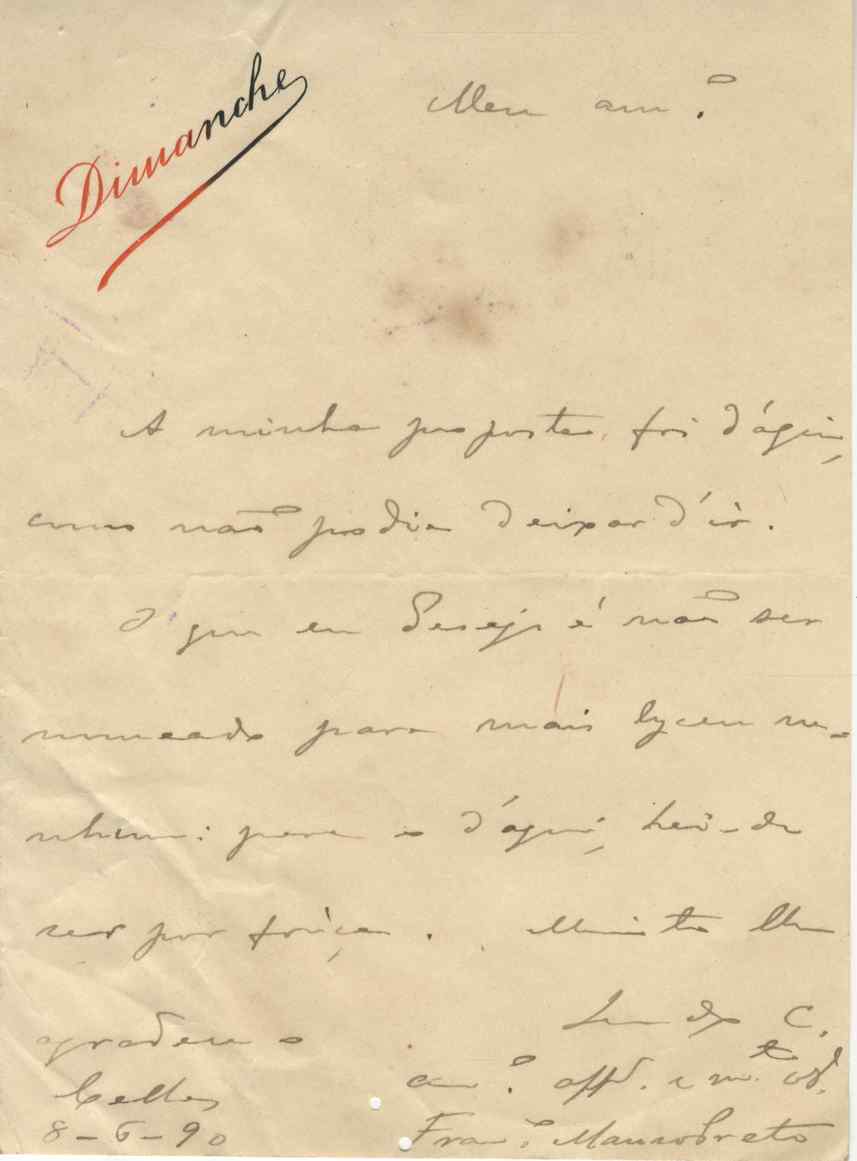 Dimanche
Meu am.º
A minha proposta, foi d'aqui,
como não podia deixar d'ir.
O que eu desejo é não ser
nomeado para mais lyceu ne-
nhum: para o d'aqui, hei-de
ser por fôrça. Muito lhe
agradeceu o
C.
am.º aff. e m.to
Cellas
8-6-90
Fran.º Manso Preto